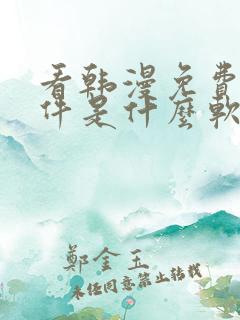 看韩漫免费
件是什麼軟
鄭金玉
未经同意禁止转载